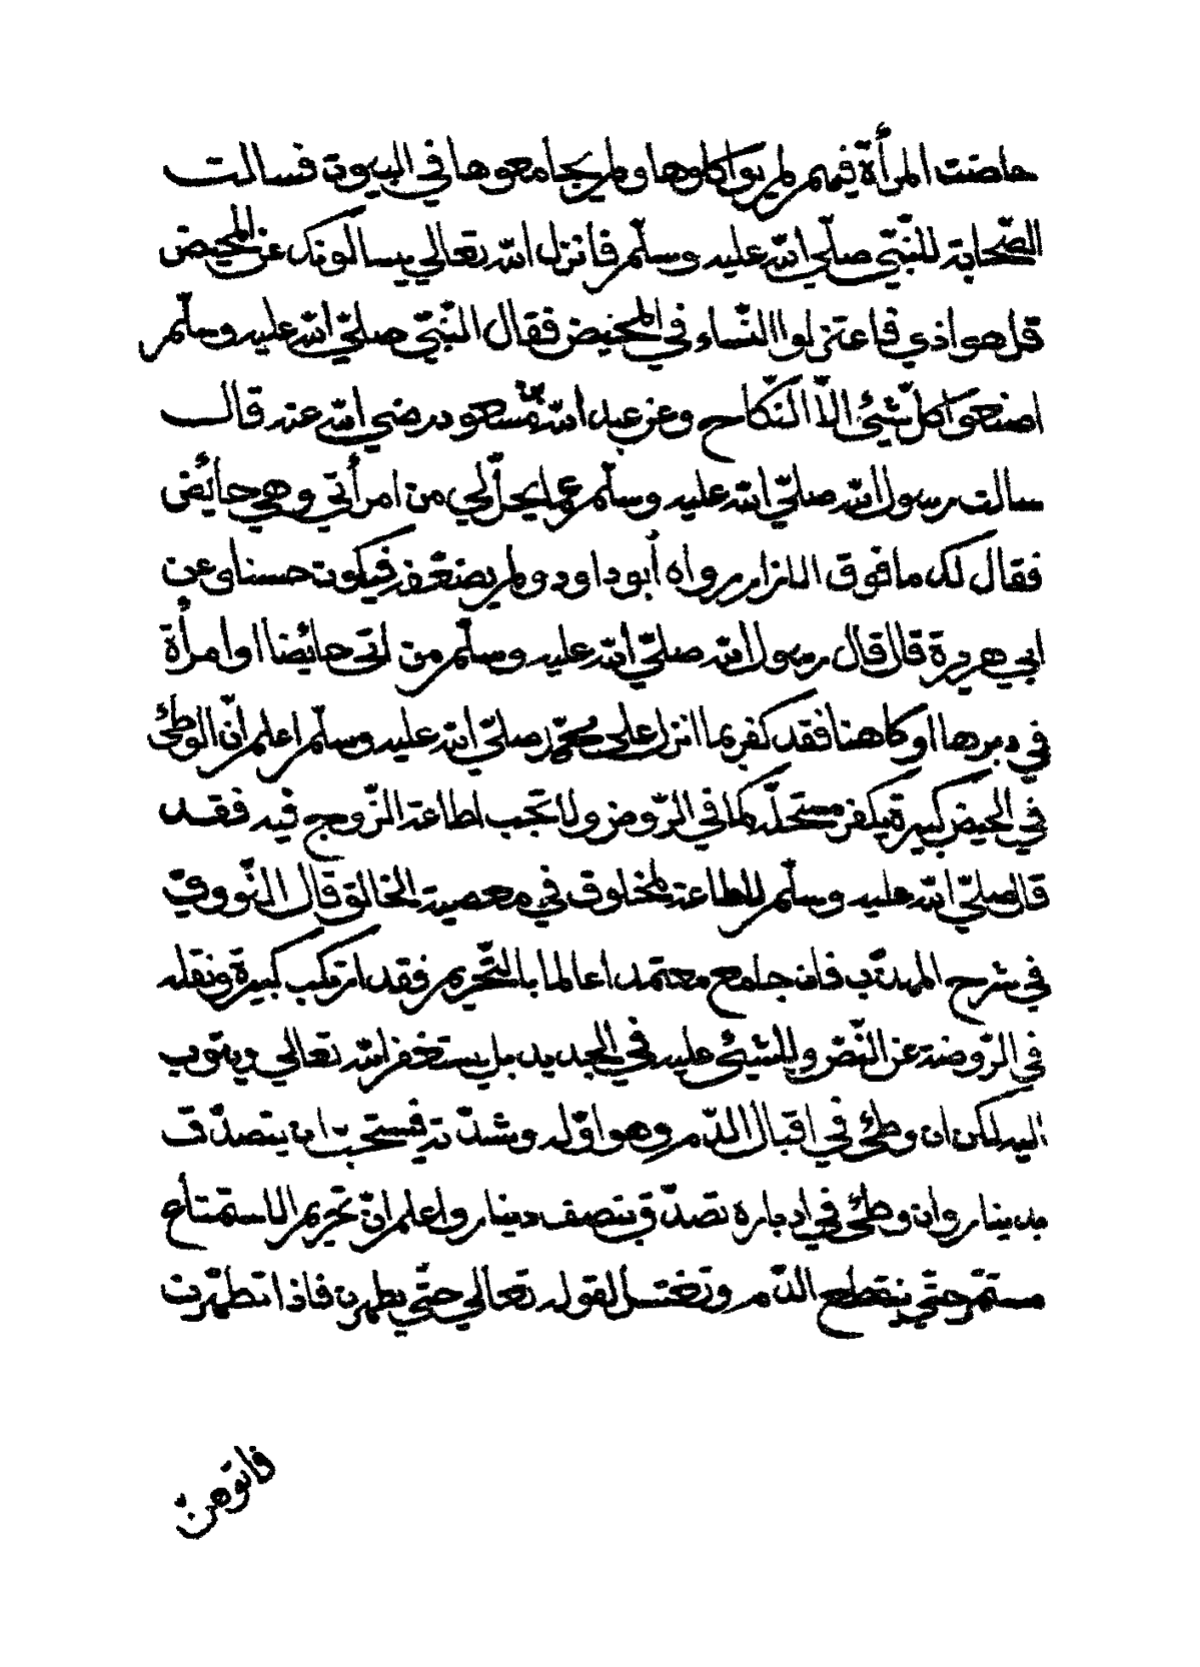 حاضت المرأة فيهم لم يواكلوها ولم يجامعوها في البيوت فسالت
الصّحابة للنّبيّ صلّي الله عليه وسلّم فانزل الله تعالي يسالونك عن المحيض
قل هو اذي فاعتزلوا النّساء في المحيض فقال النّبيّ صلّي الله عليه وسلّم
اصنعوا كلّ شيئ الّا النّكاح وعن عبد الله بن مسعود رضي الله عنه قال
سالت رسول الله صلّي الله عليه وسلّم عمّا يحلّ لي من امرأتي وهي حائض
فقال لك ما فوق الازار رواه أبو داود ولم يضعّفه فيكون حسنا وعن
ابي هريرة قال قال رسول الله صلّي الله عليه وسلّم من اتي حائضا او امرأة
في دبرها او كاهنا فقد كفر بما انزل علي محمّد صلّي الله عليه وسلّم اعلم انّ الوطئ
في الحيض كبيرة يكفر مستحلّه كما في الرّوض ولا تجب اطاعة الزّوج فيه فقد
قال صلّي الله عليه وسلّم لا طاعة لمخلوق في معصية الخالق قال النّوويّ
في شرح المهذّب فان جامع معتمدا عالما بالتّحريم فقد ارتكب كبيرة ونقله
في الرّوضة عن النّصّ ولا شيئ عليه في الجديد بل يستغفر الله تعالي ويتوب
اليه لكن ان وطئ في اقبال الدّم وهو اوّله وشدّته فيستحبّ ان يتصدّق
بدينار وان وطئ في ادباره تصدّق بنصف دينار واعلم انّ تحريم الاستمتاع
مستمرّ حتّي ينقطع الدّم وتغتسل لقوله تعالي حتّي يطهرن فاذا تطهّرن
فاتوهنّ